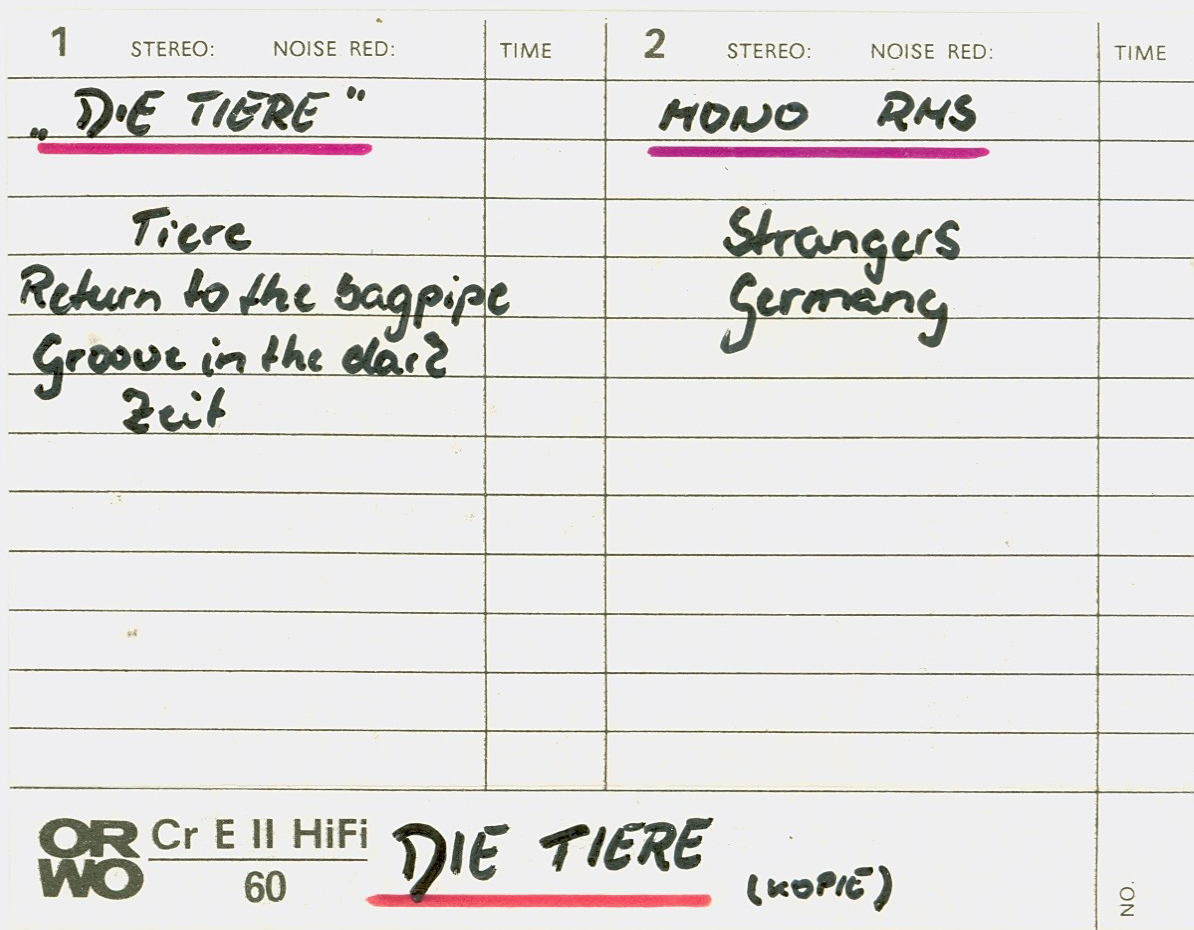 1 STEREO: NOISE RED: TIME
„DIE TIERE"
Tiere
Return to the bagpipe
Groove in the dark
Zeit
2 STEREO: NOISE RED: TIME
MONO RMS
Strangers
Germany
ORWO Cr E II HiFi 60
DIE TIERE (KOPIE)
NO.